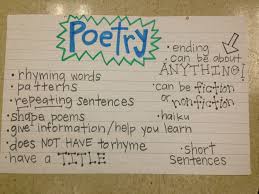 Poetry
• rhyming words
• patterns
• repeating sentences
• shape poems
• give information/help you learn
• does NOT HAVE to rhyme
• have a TITLE
• ending
• can be about
ANYTHING!
• can be fiction
or
non-fiction
• haiku
• short
sentences